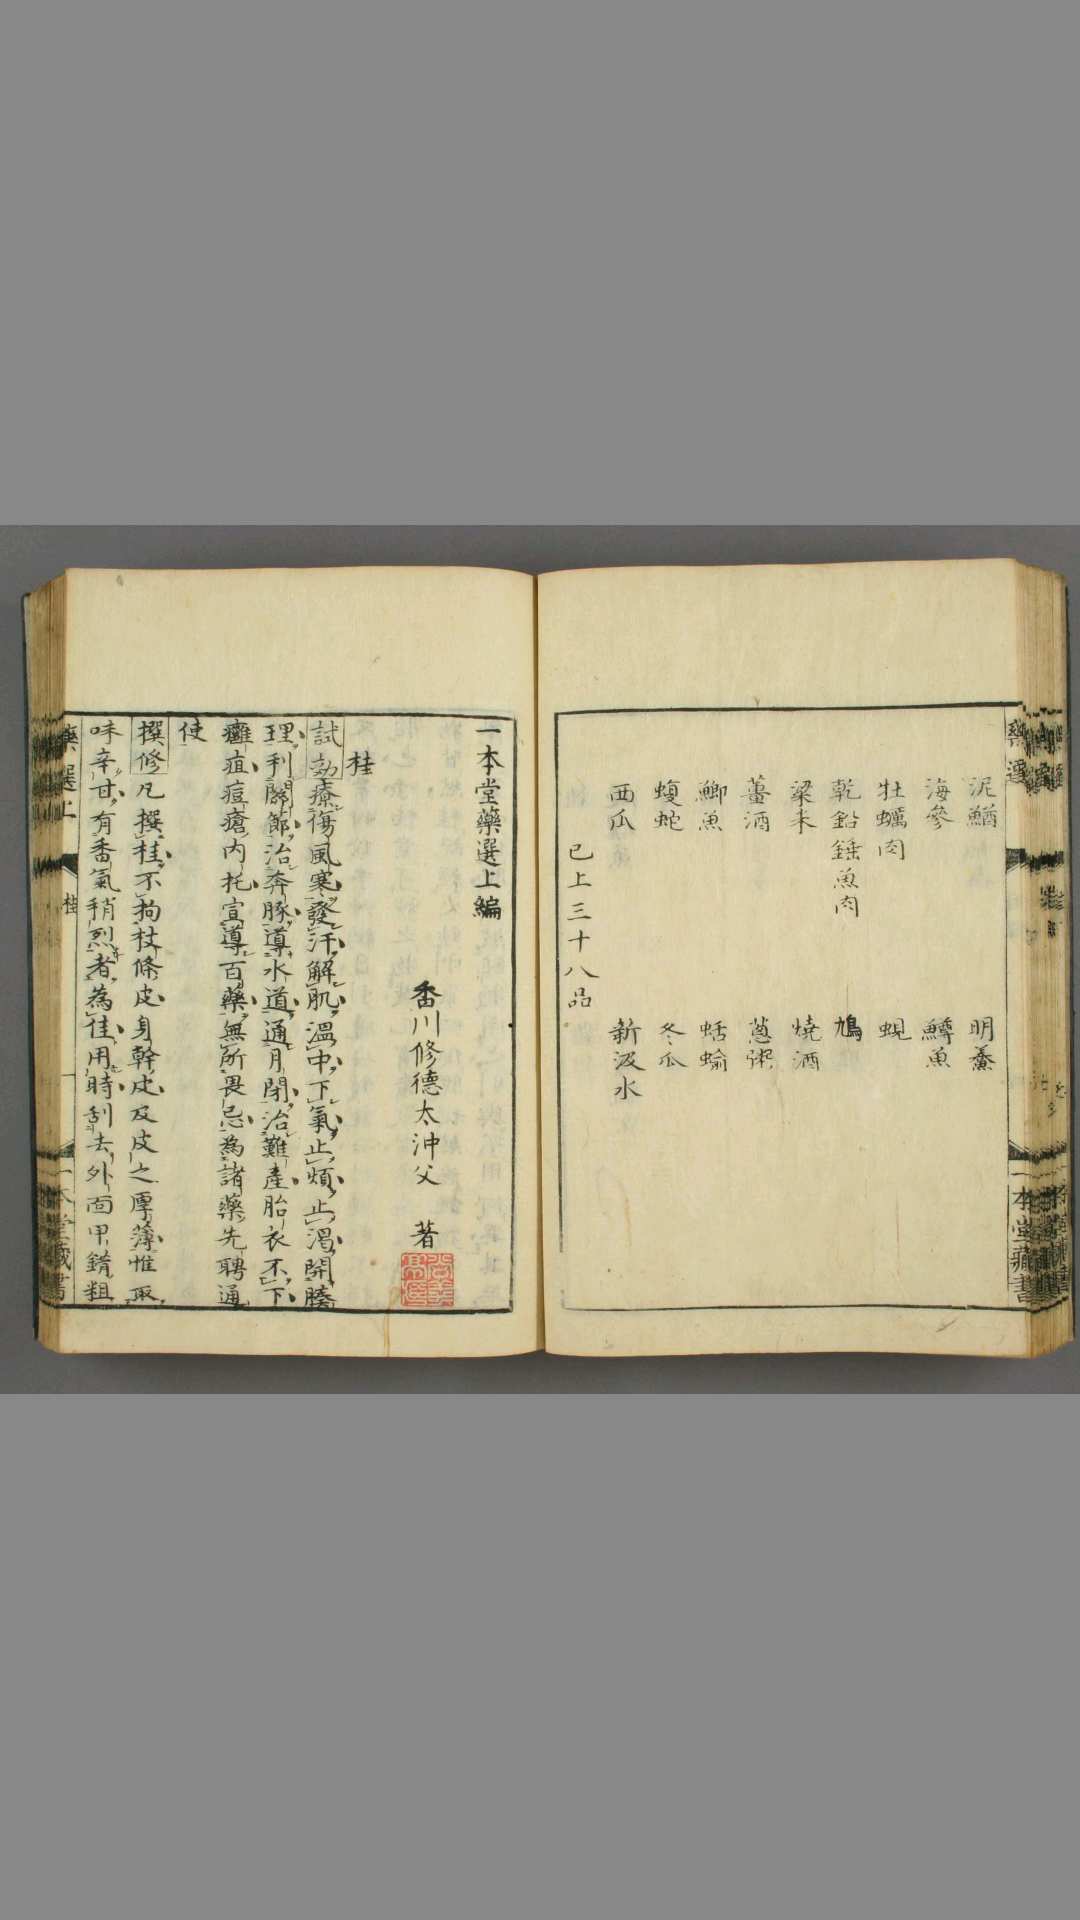 泥鰌
明鯗
海參
鱒魚
牡蠣肉
蜆
乾鉛錘魚肉
鳩
粱米
燒酒
薑酒
蔥粥
鯽魚
蛞蝓
蝮蛇
冬瓜
西瓜
新汲水
已上三十八品
一本堂藏書
一本堂藥選上編
香川修德太沖父 著
桂
試効療傷風寒發汗解肌溫中下氣止煩止渴開腠
理利關節治奔豚導水道通月閉治難產胎衣不下
癰疽痘瘡內托宣導百藥無所畏忌為諸藥先聘通
使
撰修凡撰桂不拘枝條皮身幹皮及皮之厚薄惟取
味辛甘有香氣稍烈者為佳用時刮去外面甲錯粗
藥選上
桂
一本堂藏書